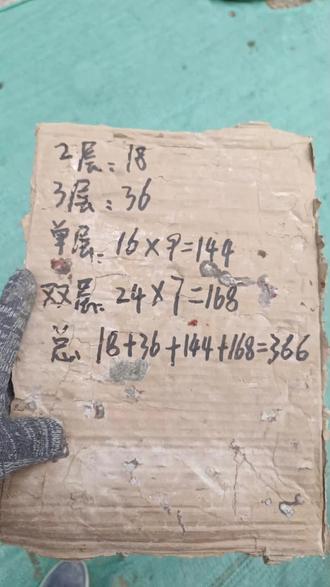 2层:18
3层:36
单层:16×9=144
双层:24×7=168
总 18+36+144+168=366